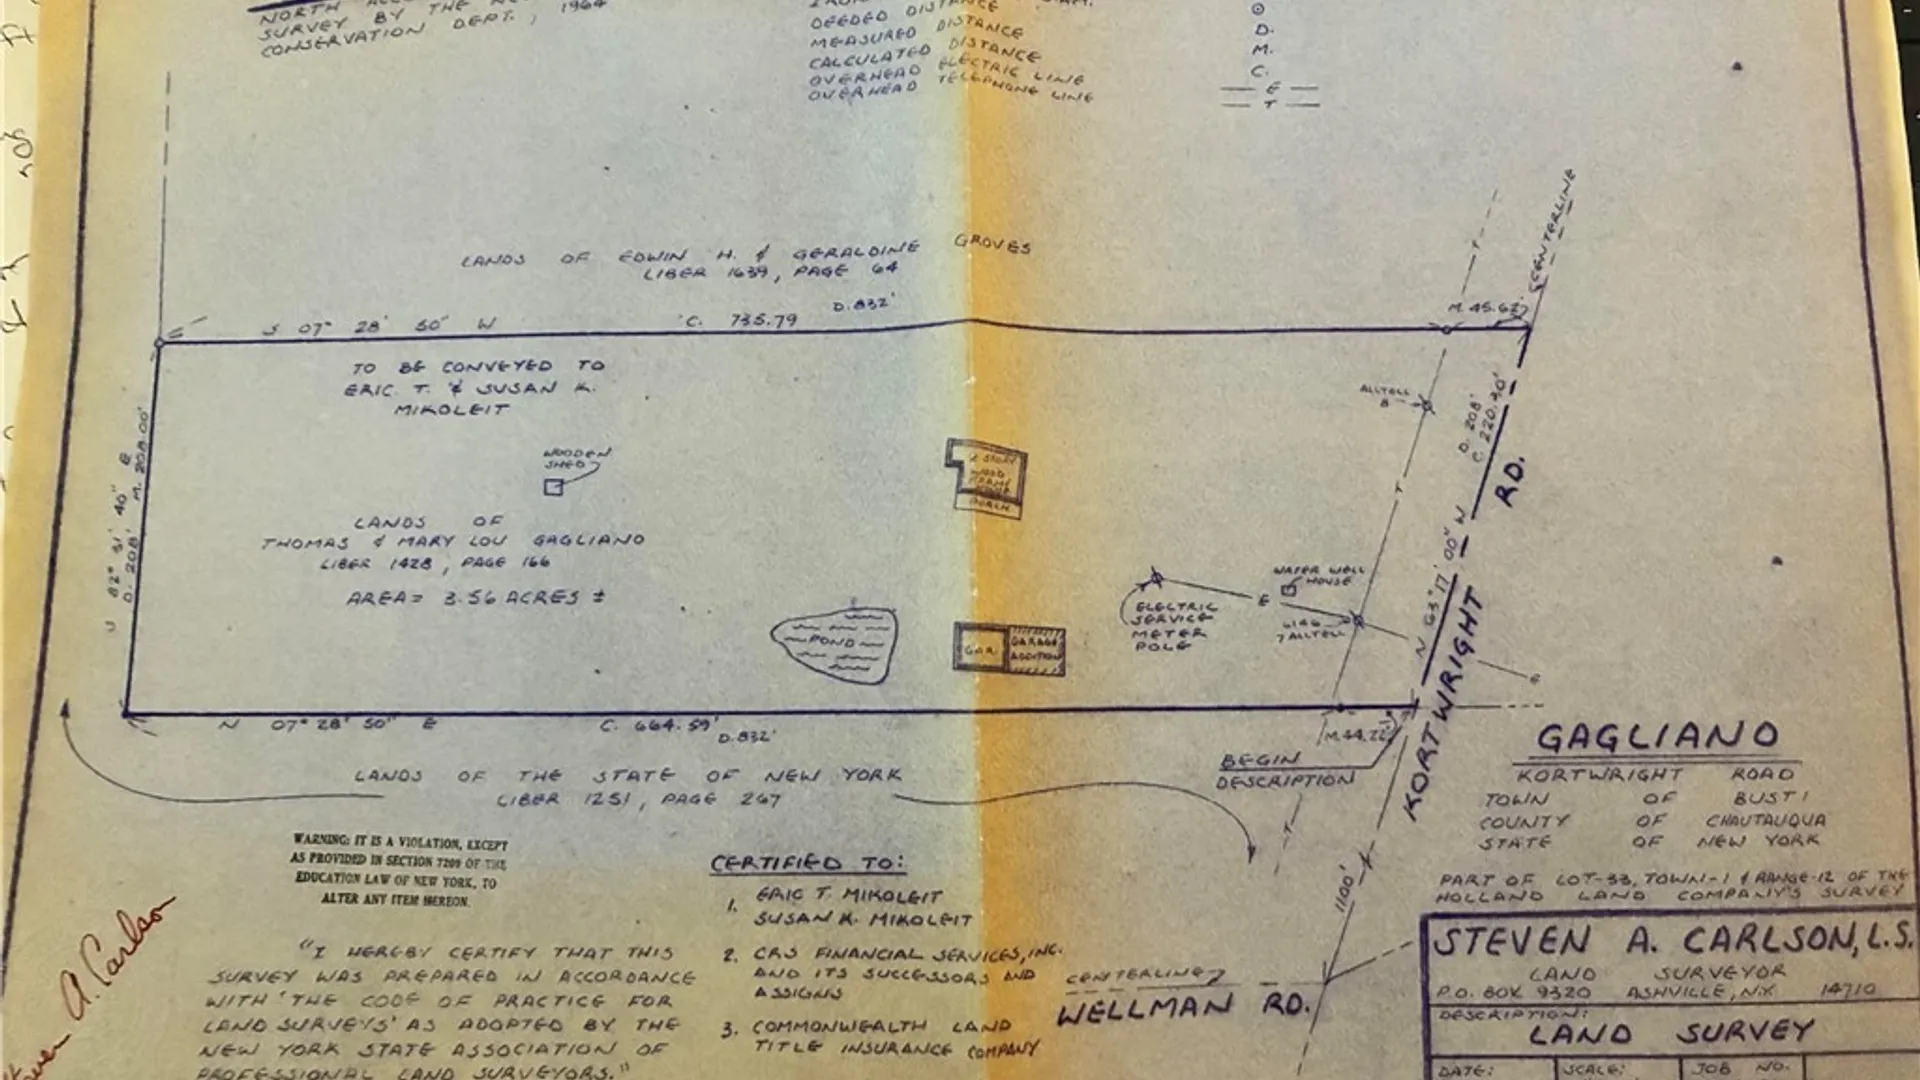 NORTH
SURVEY BY THE
CONSERVATION DEPT., 1964
DEEDED DISTANCE D.
MEASURED DISTANCE M.
CALCULATED DISTANCE C.
OVERHEAD ELECTRIC LINE — E —
OVERHEAD TELEPHONE LINE — T —
CENTERLINE
LANDS OF EDWIN H. & GERALDINE GROVES
LIBER 1639, PAGE 64
S 07° 28' 50" W C. 735.79 D. 832'
M. 45.62'
TO BE CONVEYED TO
ERIC. T. & SUSAN K.
MIKOLEIT
ALLTELL
8
D. 208'
C. 220.40'
WOODEN
SHED
2 STORY
WOOD
FRAME
PORCH
RD.
82° 31' 40" E M. 208.00'
D. 208'
LANDS OF
THOMAS & MARY LOU GAGLIANO
LIBER 1428, PAGE 166
AREA= 3.56 ACRES ±
T
N 63° 17' 00" W
WATER WELL
HOUSE
E
ELECTRIC
SERVICE
METER
POLE
6146
7 ALLTELL
POND
GAR.
GARAGE
ADDITION
KORTWRIGHT
N 07° 28' 50" E C. 664.59'
D. 832'
M. 44.22'
BEGIN
DESCRIPTION
LANDS OF THE STATE OF NEW YORK
LIBER 1251, PAGE 267
T
GAGLIANO
KORTWRIGHT ROAD
TOWN OF BUSTI
COUNTY OF CHAUTAUQUA
STATE OF NEW YORK
PART OF LOT-33, TOWN-1 & RANGE-12 OF THE
HOLLAND LAND COMPANY'S SURVEY
WARNING: IT IS A VIOLATION, EXCEPT
AS PROVIDED IN SECTION 7209 OF THE
EDUCATION LAW OF NEW YORK, TO
ALTER ANY ITEM HEREON.
CERTIFIED TO:
1. ERIC T. MIKOLEIT
SUSAN K. MIKOLEIT
2. CRS FINANCIAL SERVICES, INC.
AND ITS SUCCESSORS AND
ASSIGNS
3. COMMONWEALTH LAND
TITLE INSURANCE COMPANY
1100'
CENTERLINE
WELLMAN RD.
A. Carlson
"I HEREBY CERTIFY THAT THIS
SURVEY WAS PREPARED IN ACCORDANCE
WITH 'THE CODE OF PRACTICE FOR
LAND SURVEYS' AS ADOPTED BY THE
NEW YORK STATE ASSOCIATION OF
PROFESSIONAL LAND SURVEYORS."
STEVEN A. CARLSON, L.S.
LAND SURVEYOR
P.O. BOX 9320 ASHVILLE, N.Y. 14710
DESCRIPTION:
LAND SURVEY
DATE: SCALE: JOB NO.